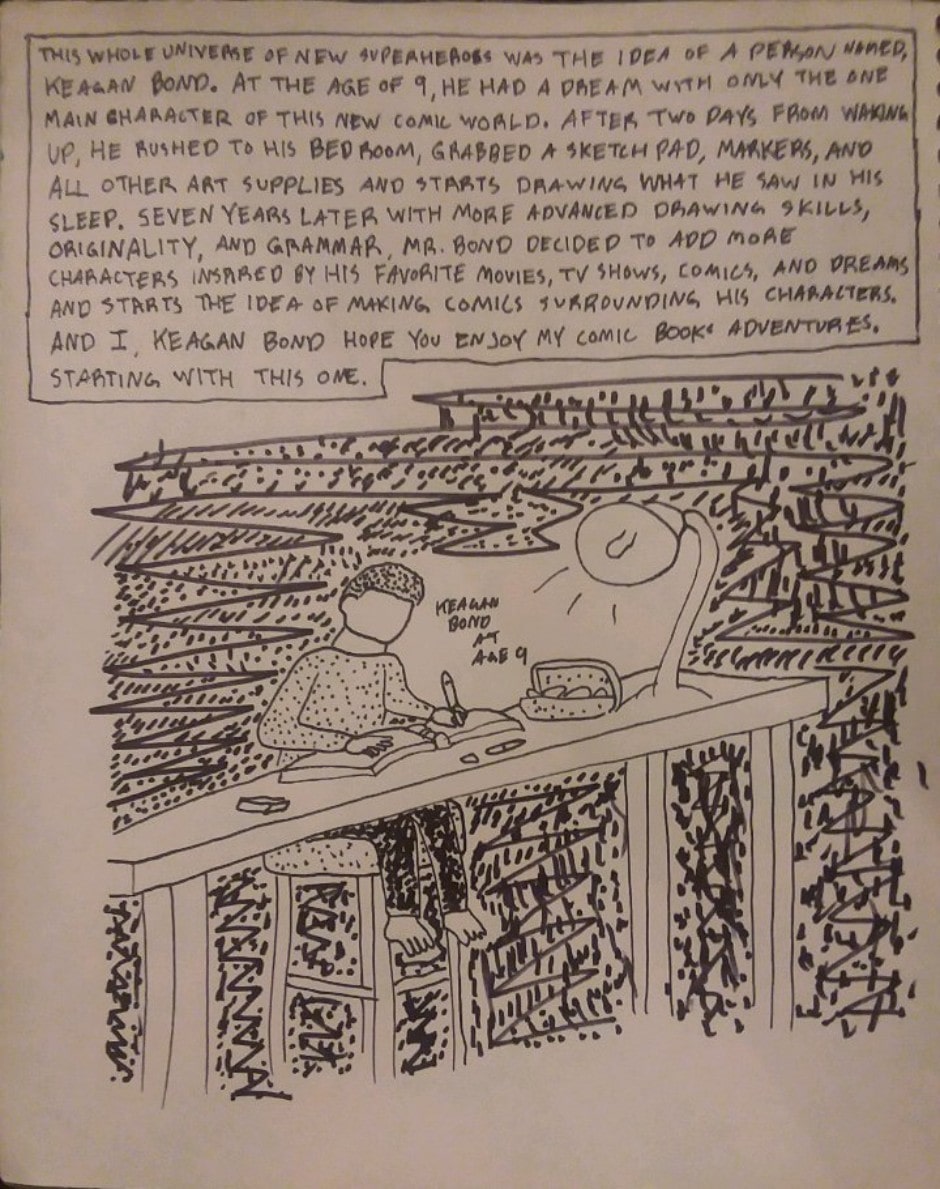 THIS WHOLE UNIVERSE OF NEW SUPERHEROES WAS THE IDEA OF A PERSON NAMED,
KEAGAN BOND. AT THE AGE OF 9, HE HAD A DREAM WITH ONLY THE ONE
MAIN CHARACTER OF THIS NEW COMIC WORLD. AFTER TWO DAYS FROM WAKING
UP, HE RUSHED TO HIS BED ROOM, GRABBED A SKETCH PAD, MARKERS, AND
ALL OTHER ART SUPPLIES AND STARTS DRAWING WHAT HE SAW IN HIS
SLEEP. SEVEN YEARS LATER WITH MORE ADVANCED DRAWING SKILLS,
ORIGINALITY, AND GRAMMAR, MR. BOND DECIDED TO ADD MORE
CHARACTERS INSPIRED BY HIS FAVORITE MOVIES, TV SHOWS, COMICS, AND DREAMS
AND STARTS THE IDEA OF MAKING COMICS SURROUNDING HIS CHARACTERS.
AND I, KEAGAN BOND HOPE YOU ENJOY MY COMIC BOOKS ADVENTURES.
STARTING WITH THIS ONE.
KEAGAN
BOND
AT
AGE 9